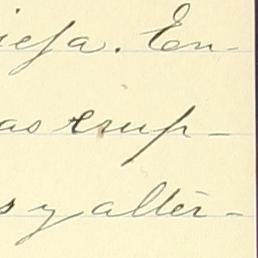 ieja. En-
as erup-
s y alter-